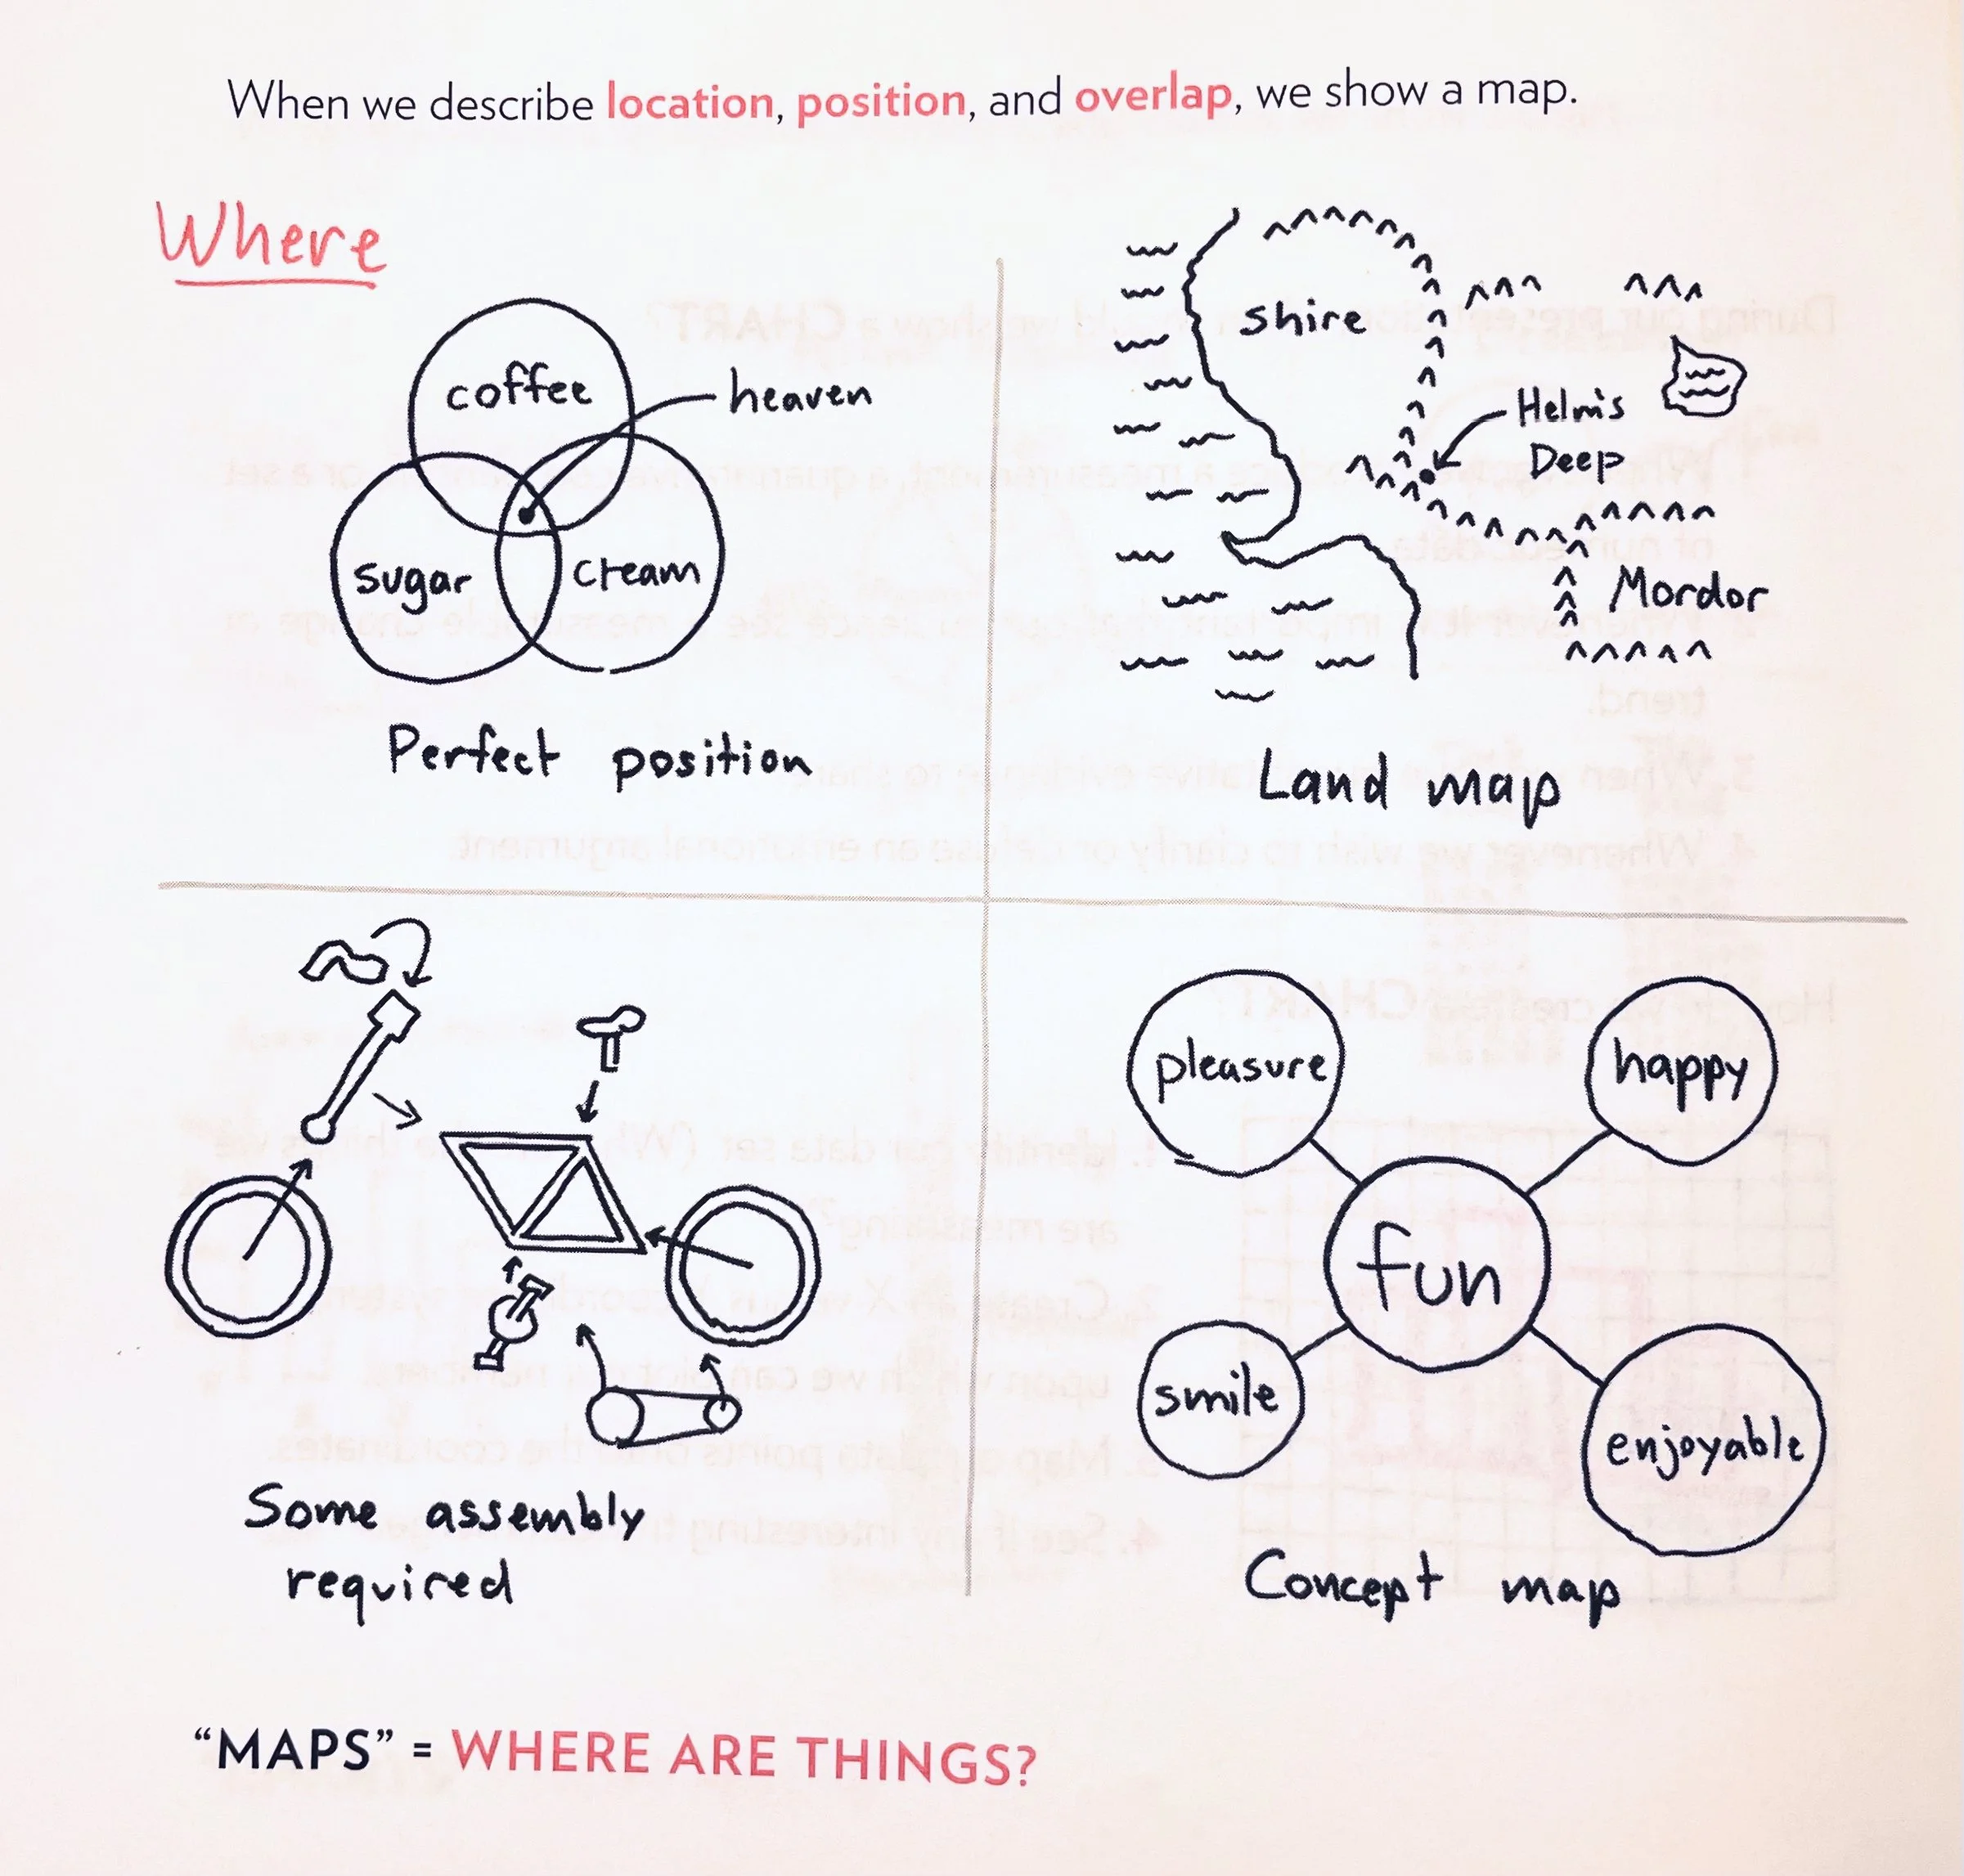 When we describe location, position, and overlap, we show a map.
Where
coffee
heaven
sugar
cream
Perfect position
shire
Helm's
Deep
Mordor
Land map
Some assembly
required
pleasure
happy
fun
smile
enjoyable
Concept map
“MAPS” = WHERE ARE THINGS?